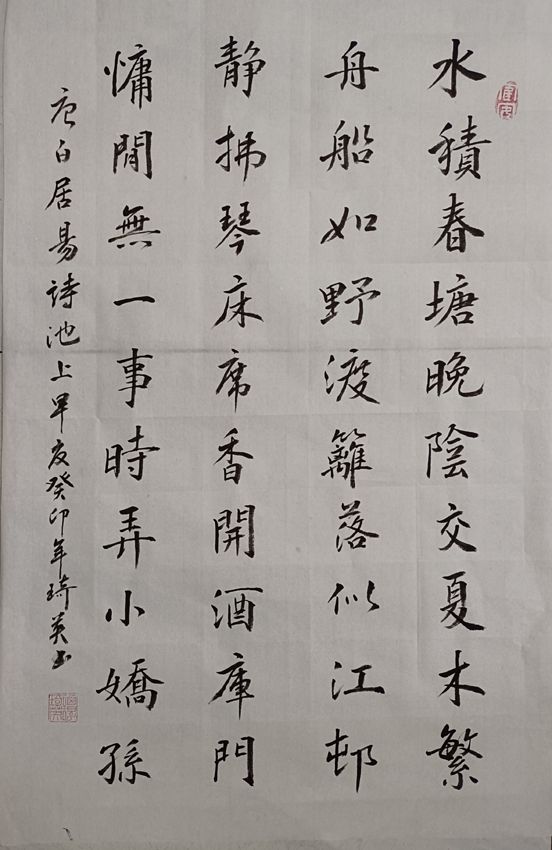 水積春塘晚陰交夏木繁
舟船如野渡籬落似江邨
静拂琴床席香開酒庫門
慵閒無一事時弄小嬌孫
唐白居易詩池上早夏癸卯年琦英书